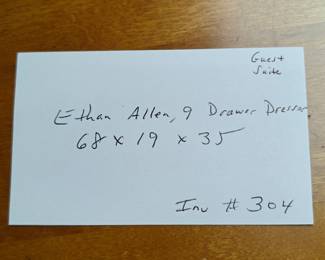 Guest
Suite
Ethan Allen, 9 Drawer Dresser
68 x 19 x 35
Inv # 304